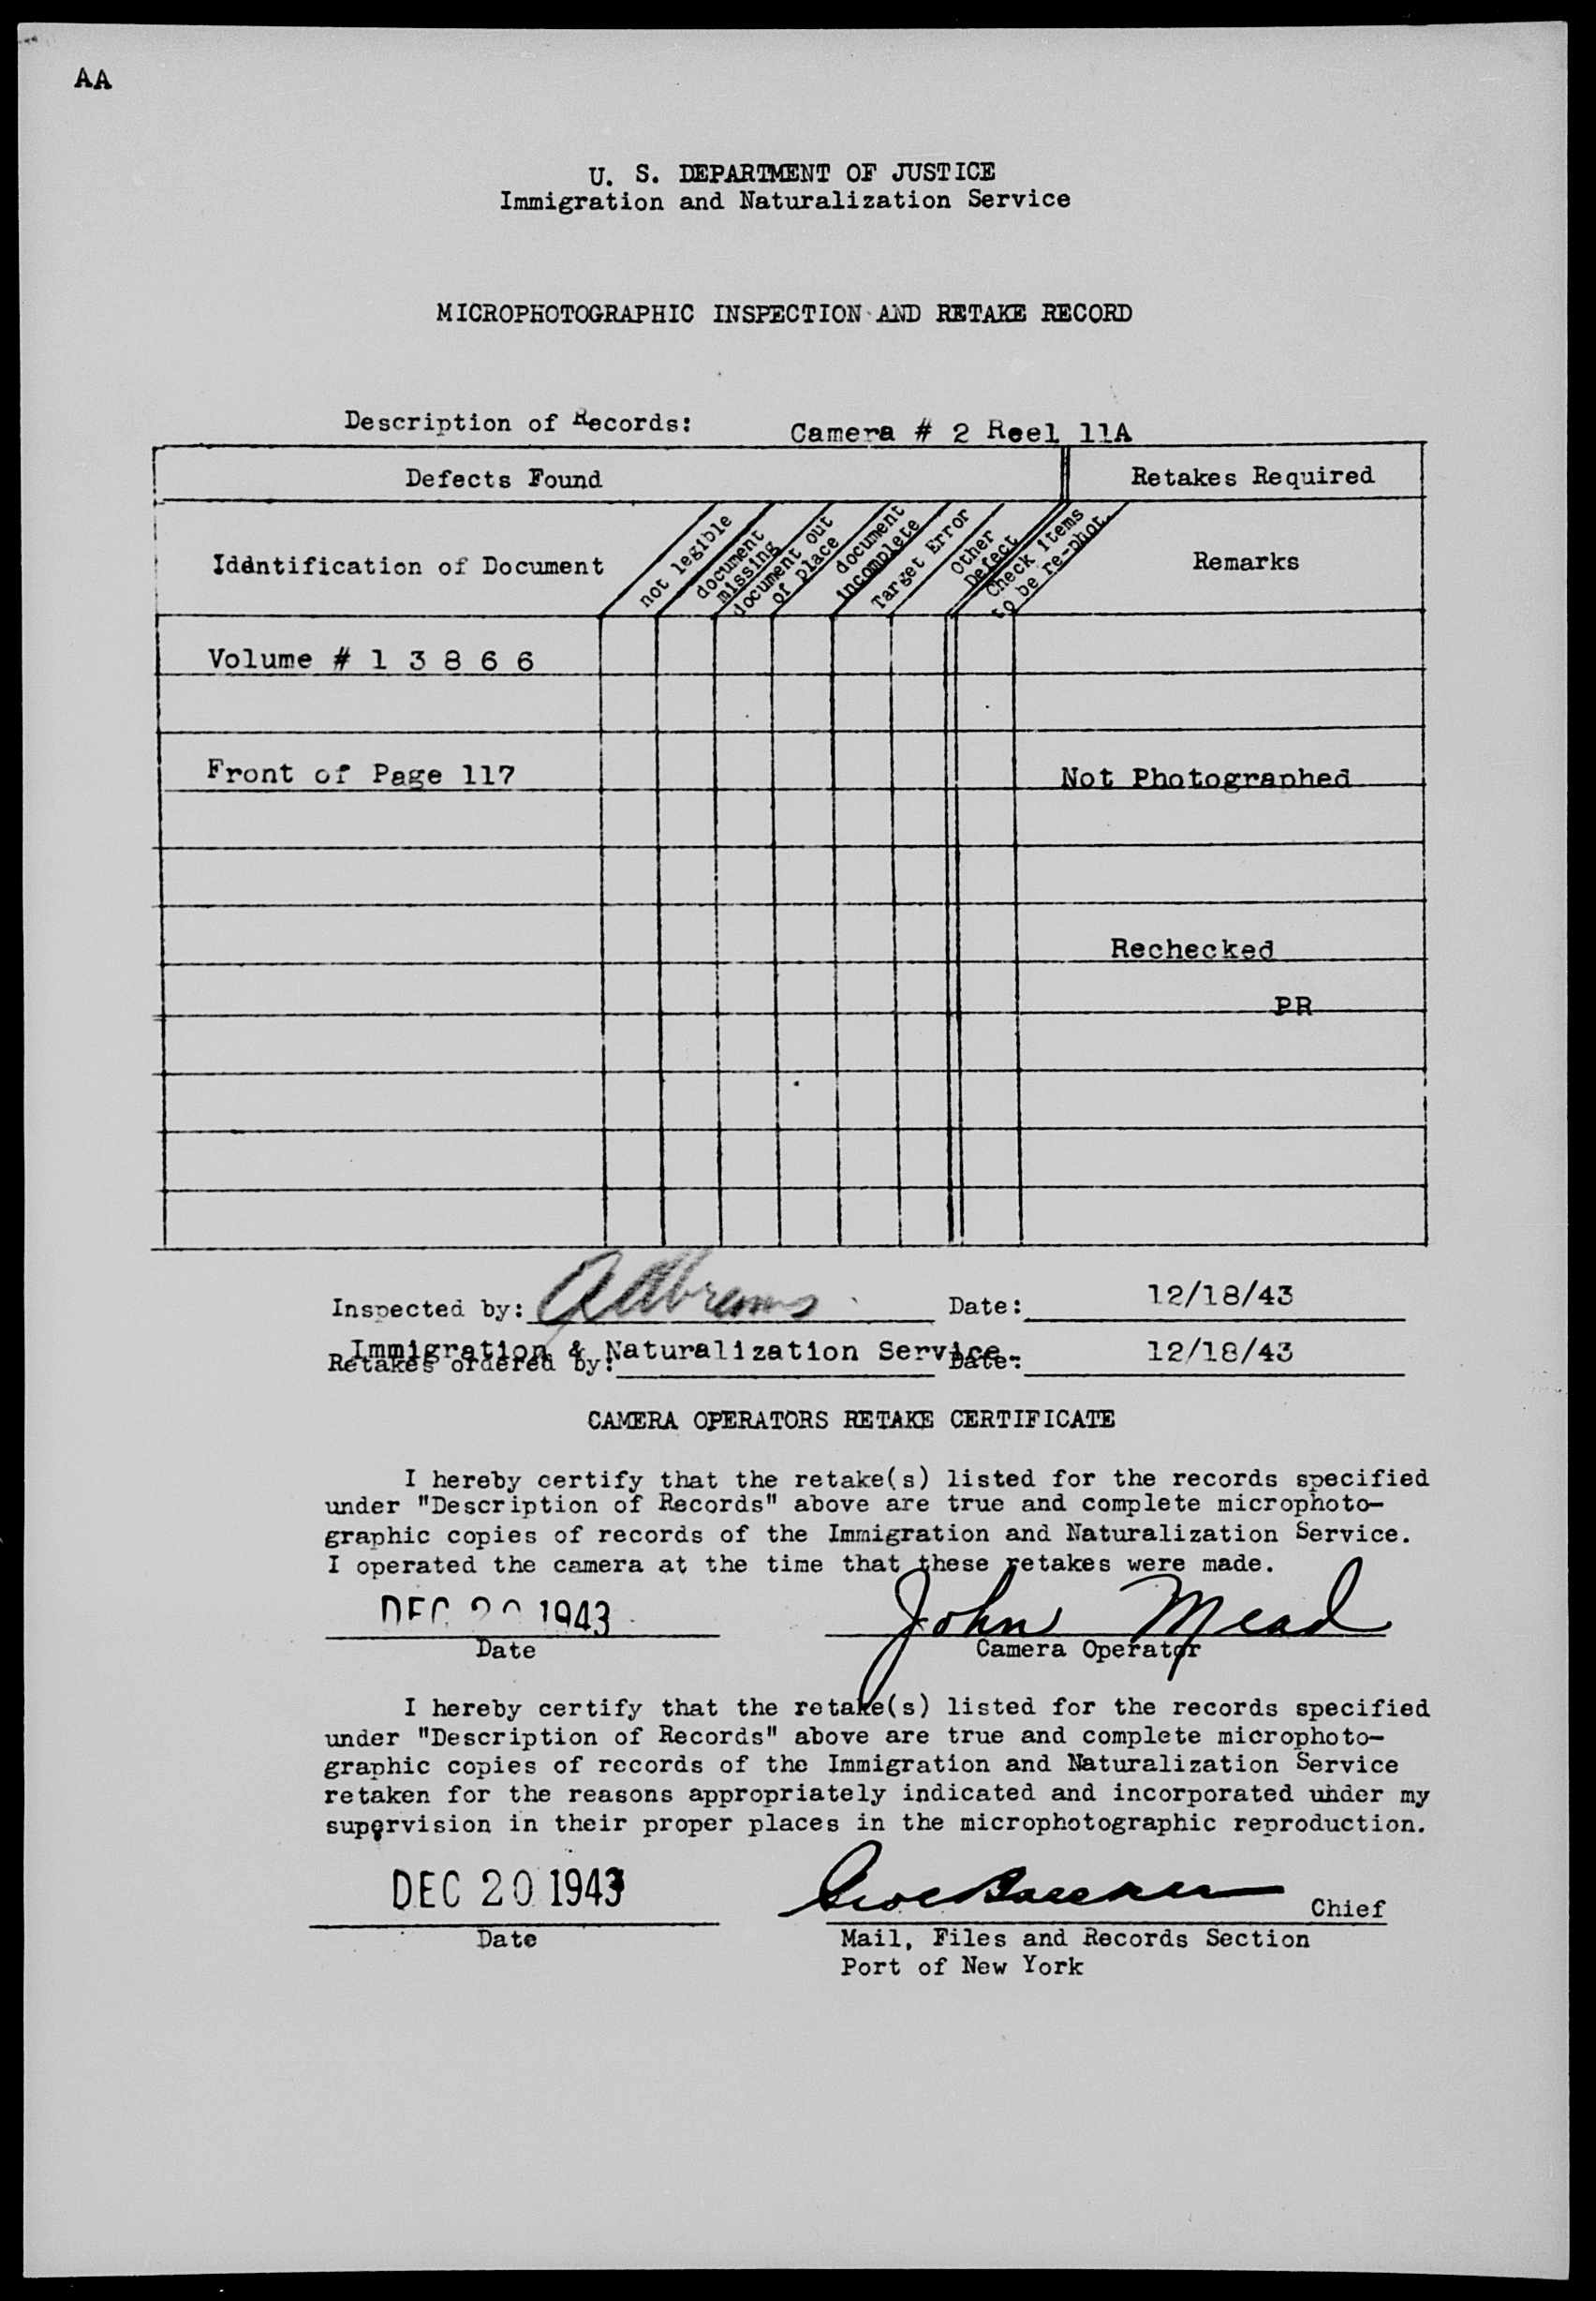 AA
U. S. DEPARTMENT OF JUSTICE
Immigration and Naturalization Service
MICROPHOTOGRAPHIC INSPECTION AND RETAKE RECORD
Description of Records: Camera # 2 Reel 11A
Defects Found Retakes Required
Iddntification of Document
not legible
document missing
document out of place
document incomplete
Target Error
Other Defect
Check items to be re-phot.
Remarks
Volume # 1 3 8 6 6
Front of Page 117 Not Photographed
Rechecked
PR
Inspected by: A Abrams Date: 12/18/43
Immigration & Naturalization Service-
Retakes ordered by: Date: 12/18/43
CAMERA OPERATORS RETAKE CERTIFICATE
I hereby certify that the retake(s) listed for the records specified
under "Description of Records" above are true and complete microphoto-
graphic copies of records of the Immigration and Naturalization Service.
I operated the camera at the time that these retakes were made.
DEC 20 1943 John Mead
Date Camera Operator
I hereby certify that the retake(s) listed for the records specified
under "Description of Records" above are true and complete microphoto-
graphic copies of records of the Immigration and Naturalization Service
retaken for the reasons appropriately indicated and incorporated under my
supervision in their proper places in the microphotographic reproduction.
DEC 20 1943 Chief
Date Mail, Files and Records Section
Port of New York